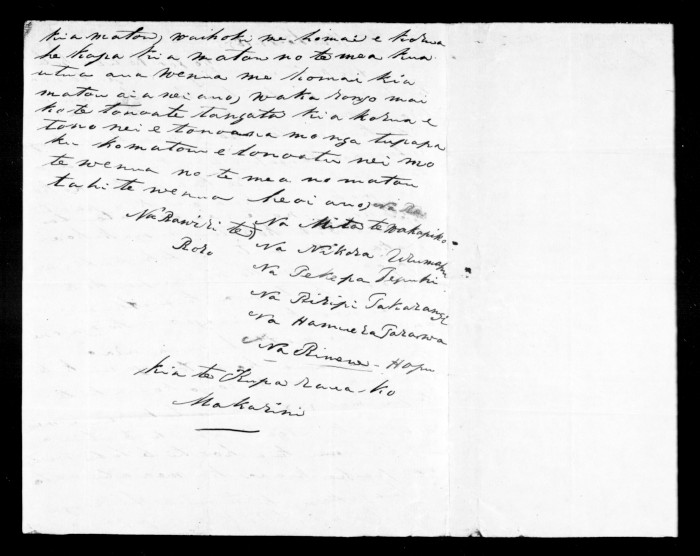 kia matou, waihoki me homai e korua
he kapa kia matou no te mea kua
utua ana wenua me homai kia
matou aianei ano, waka rongo mai
ko te tonoate tangata kia korua e
tono nei e tonoana mo nga tupapa
ku komatou e tonoatu nei mo
te wenua no te mea no matou
tahi te wenua heoi ano,
Na Rawiri te
Roro
Na Mita te wakapiko
Na Nikora
Na Pekepa
Na Piripi Takarangi
Na Hamuera
Na Rinewe - Hapu
kia te Kupa raua-ko
Makarini